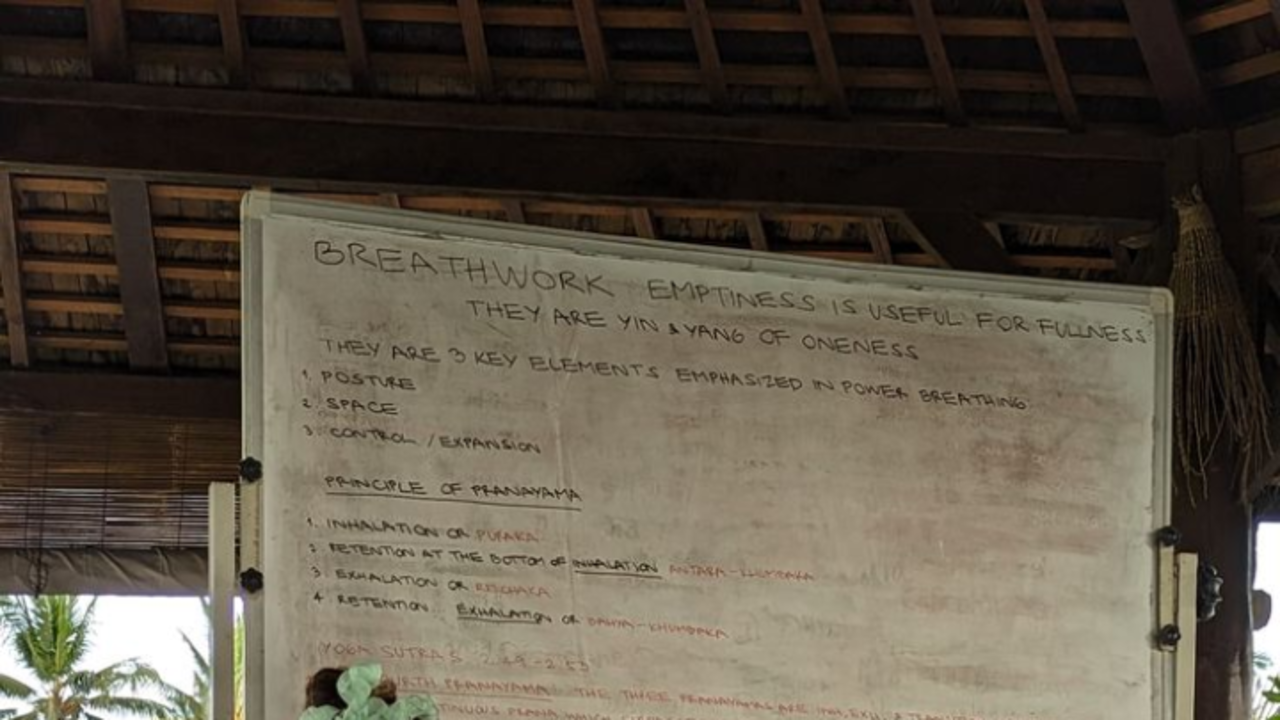 BREATHWORK EMPTINESS IS USEFUL FOR FULLNESS
THEY ARE YIN & YANG OF ONENESS
THEY ARE 3 KEY ELEMENTS EMPHASIZED IN POWER BREATHING
1. POSTURE
2. SPACE
3. CONTROL / EXPANSION
PRINCIPLE OF PRANAYAMA
1. INHALATION OR PURAKA
2. RETENTION AT THE BOTTOM OF INHALATION ANTARA-KHUMBAKA
3. EXHALATION OR RECHAKA
4. RETENTION... EXHALATION OR BAHYA-KHUMBAKA
YOGA SUTRAS 2.49-2.53
PRANAYAMA: THE THREE PRANAYAMAS ARE INH, EXH, &
PRANA WHICH